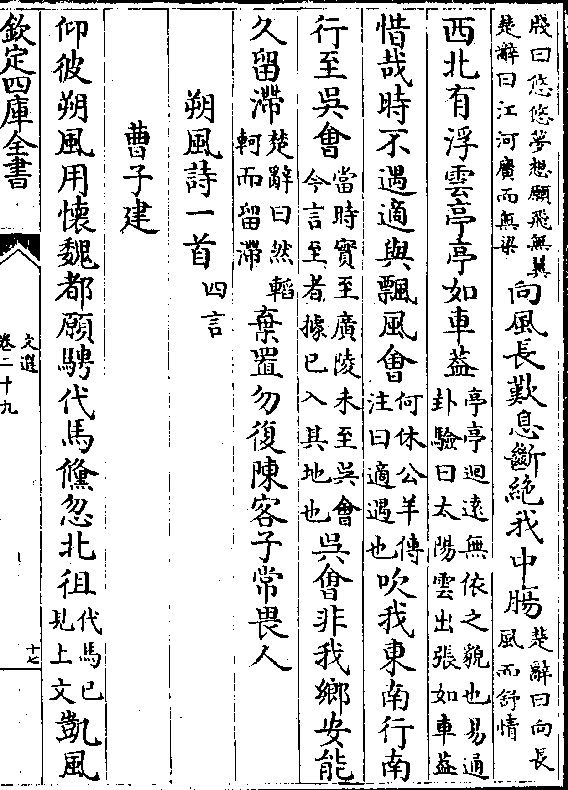 殷曰悠悠夢想願飛無翼楚辭曰江河廣而無梁向風長歎息斷絶我中膓楚辭曰向長風而舒情
西北有浮雲亭亭如車葢亭亭迥遠無依之貌也易通卦驗曰太陽雲出張如車葢
惜哉時不遇適與飄風會何休公羊傳注曰適遇也吹我東南行南
行至吳會當時實至廣陵未至吳會今言至者據已入其地也吳會非我鄉安能
久留滯楚辭曰然轁軻而留滯棄置勿復陳客子常畏人
朔風詩一首四言
曹子建
仰彼朔風用懷魏都願騁代馬儵忽北徂代馬已見上文凱風
欽定四庫全書
文選
卷二十九
十七